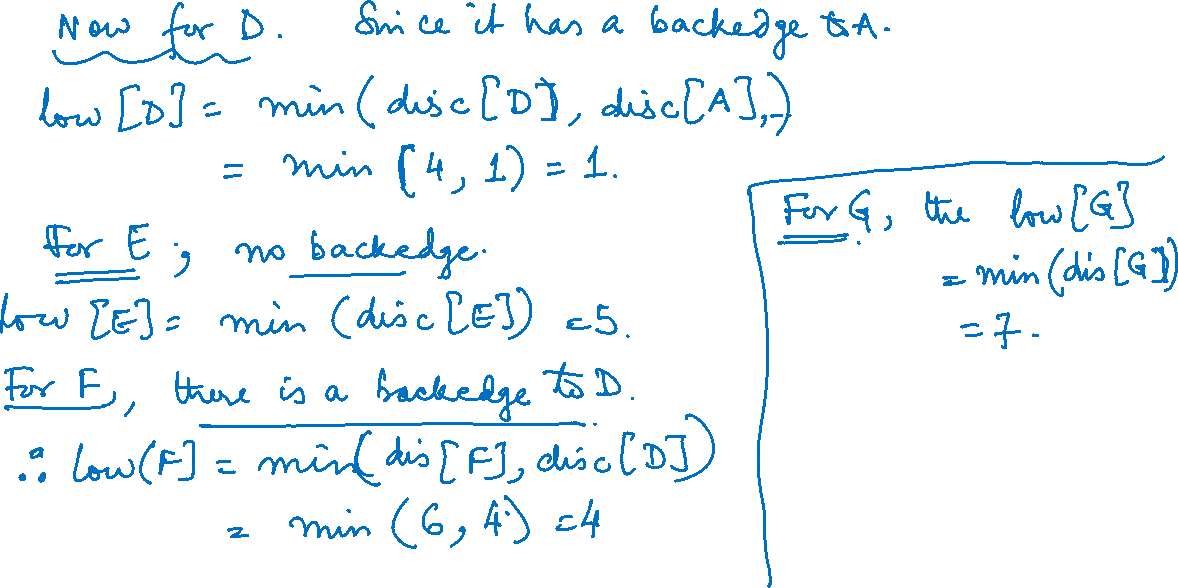 Now for D. Since it has a backedge to A.
low [D] = min (disc [D], disc[A],-)
= min (4, 1) = 1.
For E ; no backedge.
low [E] = min (disc[E]) = 5.
For F, there is a backedge to D.
∴ low(F] = min( dis [F], disc[D])
= min (6, 4) = 4
For G, the low [G]
= min (dis [G])
= 7.